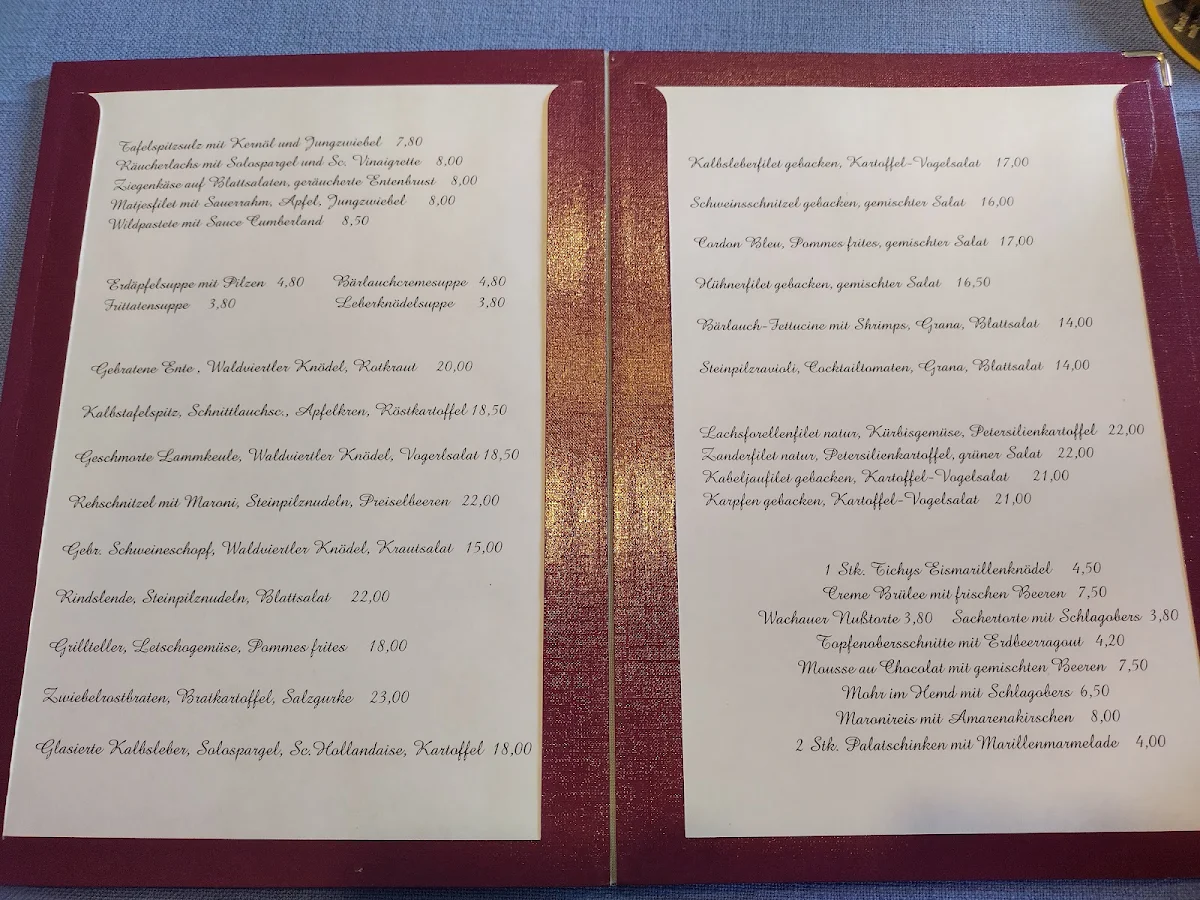 Tafelspitzsulz mit Kernöl und Jungzwiebel 7,80
Räucherlachs mit Solospargel und Sc. Vinaigrette 8,00
Ziegenkäse auf Blattsalaten, geräucherte Entenbrust 8,00
Matjesfilet mit Sauerrahm, Apfel, Jungzwiebel 8,00
Wildpastete mit Sauce Cumberland 8,50
Erdäpfelsuppe mit Pilzen 4,80 Bärlauchcremesuppe 4,80
Frittatensuppe 3,80 Leberknödelsuppe 3,80
Gebratene Ente , Waldviertler Knödel, Rotkraut 20,00
Kalbstafelspitz, Schnittlauchsc., Apfelkren, Röstkartoffel 18,50
Geschmorte Lammkeule, Waldviertler Knödel, Vogerlsalat 18,50
Rehschnitzel mit Maroni, Steinpilznudeln, Preiselbeeren 22,00
Gebr. Schweineschopf, Waldviertler Knödel, Krautsalat 15,00
Rindslende, Steinpilznudeln, Blattsalat 22,00
Grillteller, Letschogemüse, Pommes frites 18,00
Zwiebelrostbraten, Bratkartoffel, Salzgurke 23,00
Glasierte Kalbsleber, Solospargel, Sc.Hollandaise, Kartoffel 18,00
Kalbsleberfilet gebacken, Kartoffel-Vogelsalat 17,00
Schweinsschnitzel gebacken, gemischter Salat 16,00
Cordon Bleu, Pommes frites, gemischter Salat 17,00
Hühnerfilet gebacken, gemischter Salat 16,50
Bärlauch-Fettucine mit Shrimps, Grana, Blattsalat 14,00
Steinpilzravioli, Cocktailtomaten, Grana, Blattsalat 14,00
Lachsforellenfilet natur, Kürbisgemüse, Petersilienkartoffel 22,00
Zanderfilet natur, Petersilienkartoffel, grüner Salat 22,00
Kabeljaufilet gebacken, Kartoffel-Vogelsalat 21,00
Karpfen gebacken, Kartoffel-Vogelsalat 21,00
1 Stk. Tichys Eismarillenknödel 4,50
Creme Brülee mit frischen Beeren 7,50
Wachauer Nußtorte 3,80 Sachertorte mit Schlagobers 3,80
Topfenobersschnitte mit Erdbeerragout 4,20
Mousse au Chocolat mit gemischten Beeren 7,50
Mohr im Hemd mit Schlagobers 6,50
Maronireis mit Amarenakirschen 8,00
2 Stk. Palatschinken mit Marillenmarmelade 4,00